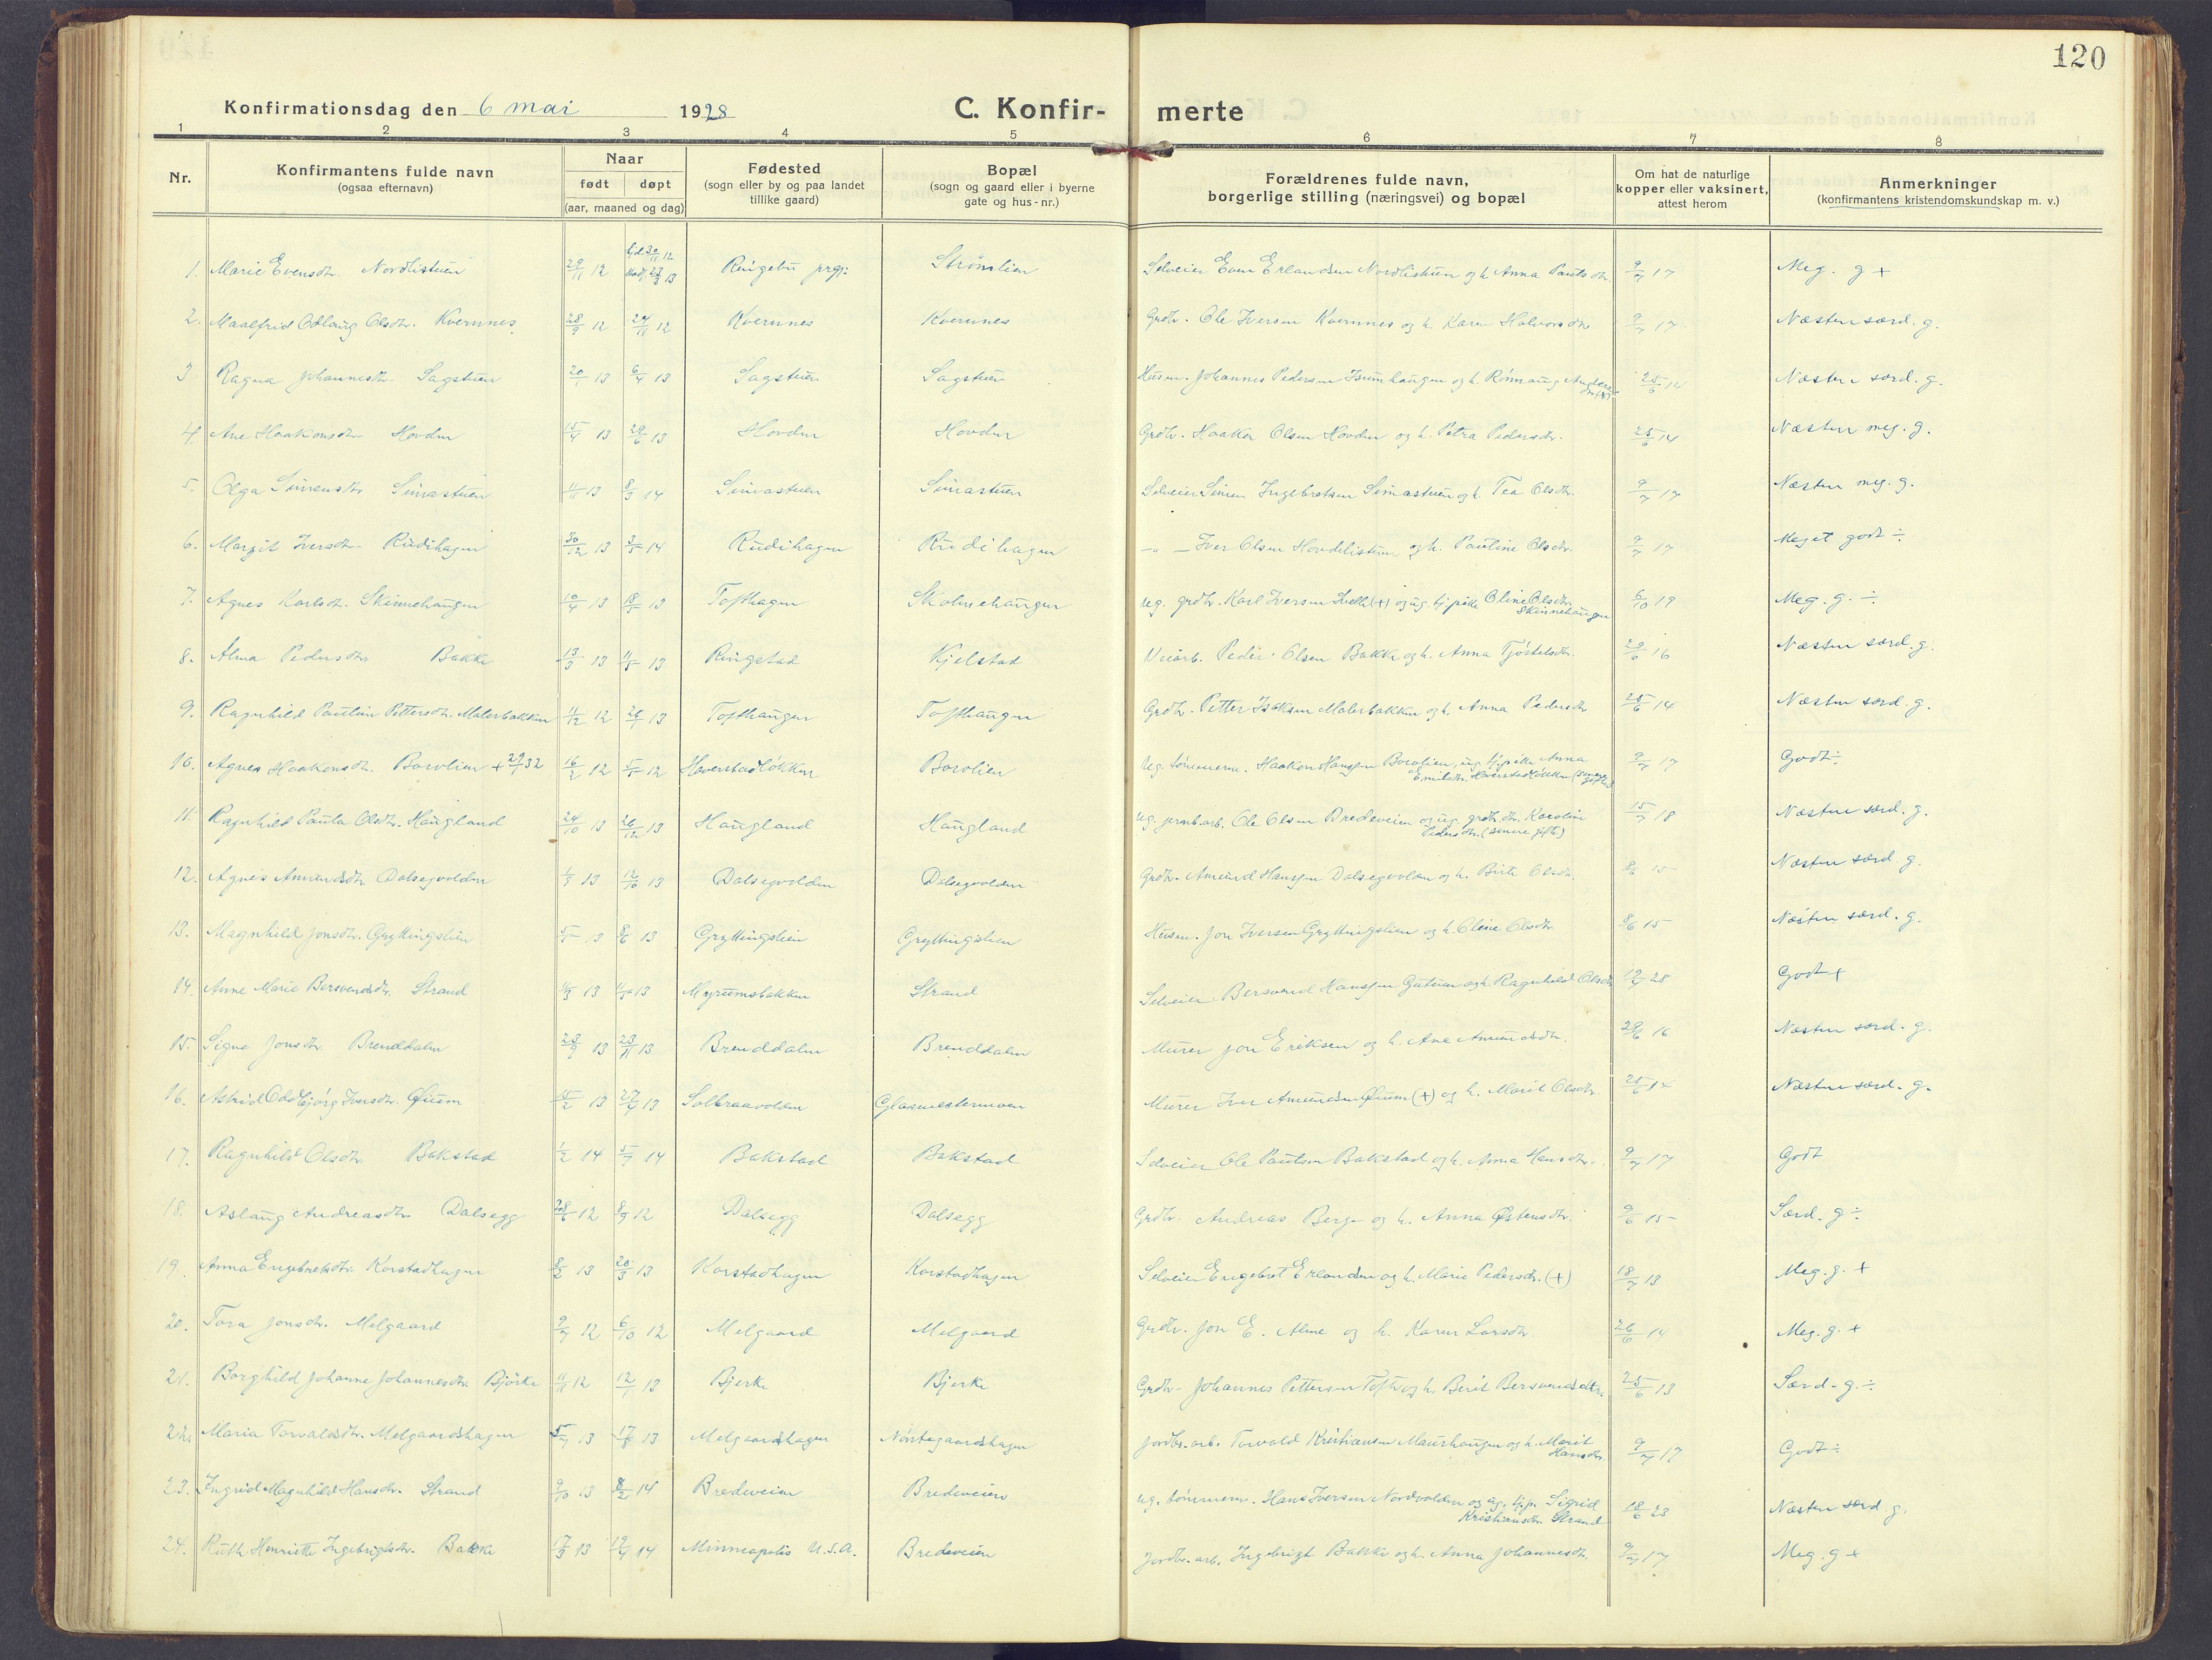 120
Konfirmationsdag den 6 mai 1928 C. Konfir- merte
1 2 3 4 5 6 7 8
Nr. Konfirmantens fulde navn (ogsaa efternavn) Naar født døpt (aar, maaned og dag) Fødested (sogn eller by og paa landet tillike gaard) Bopæl (sogn og gaard eller i byerne gate og hus-nr.) Forældrenes fulde navn, borgerlige stilling (næringsvei) og bopæl Om hat de naturlige kopper eller vaksinert, attest herom Anmerkninger (konfirmantens kristendomskundskap m. v.)
1. Marie Evensdtr. Nordlistuen 29/11 12 30/11 12 13 Ringebu prgj. Strömlien Selveier Even Erlandsen Nordlistuen og h. Anna Paulsdtr. 9/7 17 Meg. g +
2. Maalfrid Odlaug Olsdtr. Kvernnes 28/9 12 24/11 12 Kvernnes Kvernnes Grdbr. Ole Iversen Kvernnes og h. Karen Halvorsdtr. 9/7 17 Næsten særd. g.
3 Ragna Johannesdtr. Sagstuen 20/1 13 6/4 13 Sagstuen Sagstuen Husm. Johannes Pedersen Isumhaugen og h. Rönnaug 25/6 14 Næsten særd. g.
4. Ane Haakonsdtr. Hovden 15/4 13 29/6 13 Hovden Hovden Grdbr. Haakon Olsen Hovden og h. Petra Pedersdtr. 25/6 14 Næsten meg. g.
5. Olga Simensdtr. Simastuen 11/11 13 8/3 14 Simastuen Simastuen Selveier Simen Ingebretsen Simastuen og h. Tea Olsdtr. 9/7 17 Næsten meg. g.
6. Margit Iversdtr. Rudihagen 30/12 13 3/5 14 Rudihagen Rudihagen — " — Iver Olsen Hovdelistuen og h. Pauline Olsdtr. 9/7 17 Meget godt ÷
7. Agnes Karlsdtr. Skinnehaugen 10/4 13 18/5 13 Tofthagen Skolmehaugen ug. grdbr. Karl Iversen (+) og ug. tj.pike Oline Olsdtr. Skinnehaugen 6/10 19 Meg. g. ÷
8. Alma Pedersdtr. Bakke 13/3 13 11/5 13 Ringstad Kjelstad Veiarb. Peder Olsen Bakke og h. Anna Tjöstelsdtr. 16 Næsten særd. g.
9. Ragnhild Pauline Pettersdtr. Malerbakken 11/12 12 26/1 13 Tofthaugen Tofthaugen Grdbr. Petter Isaksen Malerbakken og h. Anna Pedersdtr 25/6 14 Næsten særd. g.
10. Agnes Haakonsdtr. Borolien + 29/1 32 16/2 12 5/5 12 Haverstadlökken Borolien Ug. tömmerm. Haakon Hansen Borolien, ug. tj.pike Anna Emilsdtr. Haverstadlökken 9/7 17 Godt ÷
11. Ragnhild Paula Olsdtr. Haugland 24/10 13 26/12 13 Haugland Haugland ug. jernb.arb. Ole Olsen Bredeveien og ug. grdbr.dtr. Karoline Pedersdtr. (senere gift) 15/7 18 Næsten særd. g.
12. Agnes Amundsdtr. Dalsegvolden 1/9 13 12/10 13 Dalsegvolden Dalsegvolden Grdbr. Amund Hansen Dalsegvolden og h. Birte Olsdtr. 8/6 15 Næsten særd. g.
13. Magnhild Jonsdtr. Gryttingslien 13 8/6 13 Gryttingslien Gryttingslien Husm. Jon Iversen Gryttingslien og h. Oline Olsdtr. 8/6 15 Næsten særd. g.
14. Anne Marie Bersvendsdtr. Strand 4/3 13 13 Myrumsbakken Strand Selveier Bersvend Hansen Gutuen og h. Ragnhild Olsdtr 12/3 28 Godt +
15. Signe Jonsdtr. Brenddalen 28/9 13 23/11 13 Brenddalen Brenddalen Murer Jon Eriksen og h. Ane Amundsdtr. 29/6 16 Næsten særd. g.
16. Astrid Oddbjörg Iversdtr. Øium 15/2 13 27/4 13 Solbraavolden Glasmestermoen Murer Iver Amundsen Øium (+) og h. Marit Olsdtr. 25/6 14 Næsten særd. g.
17. Ragnhild Olsdtr. Bakstad 1/2 14 5/7 14 Bakstad Bakstad Selveier Ole Paulsen Bakstad og h. Anna Hansdtr. 9/7 17 Godt
18. Aslaug Andreasdtr. Dalsegg 28/6 12 8/9 12 Dalsegg Dalsegg Grdbr. Andreas Berge og h. Anna Østensdtr. 9/6 15 Særd. g ÷
19. Anna Engebretsdtr. Korstadhagen 8/2 13 20/3 13 Korstadhagen Korstadhagen Selveier Engebret Erlandsen og h. Marie Pedersdtr. (+) 18/7 13 Meg. g. +
20. Tora Jonsdtr. Melgaard 9/7 12 6/10 12 Melgaard Melgaard Grdbr. Jon E. Alme og h. Karen Larsdtr. 26/6 14 Meg. g. +
21. Borghild Johanne Johannesdtr. Björke 11/11 12 12/1 13 Bjerke Bjerke Grdbr. Johannes Pettersen Tofte og h. Berit Bersvendsdtr. 25/6 13 Særd. g. ÷
22. Maria Torvaldsdtr. Melgaardshagen 5/7 13 17/8 13 Melgaardshagen Nörstegaardshagen Jordbr. arb. Torvald Kristiansen Maurhaugen og h. Marit Hansdtr. 9/7 17 Godt ÷
23. Ingrid Magnhild Hansdtr. Strand 9/10 13 8/2 14 Bredeveien Bredeveien ug. tömmerm. Hans Iversen Nordvolden og ug. tj.p. Sigrid Kristiansdtr. Strand 18/6 23 Næsten særd. g.
24. Ruth Henriette Ingebrigtsdtr. Bakke 17/9 13 12/4 14 Minneapolis U.S.A. Bredeveien Jordbr. arb. Ingebrigt Bakke og h. Anna Johannesdtr. 9/7 17 Meg. g +